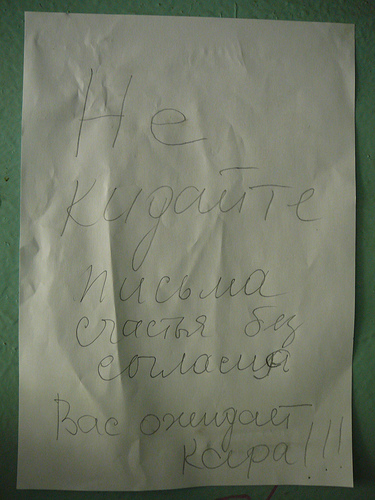 Не
кидайте
письма
счастья без
согласия
Вас ожидает
кара!!!